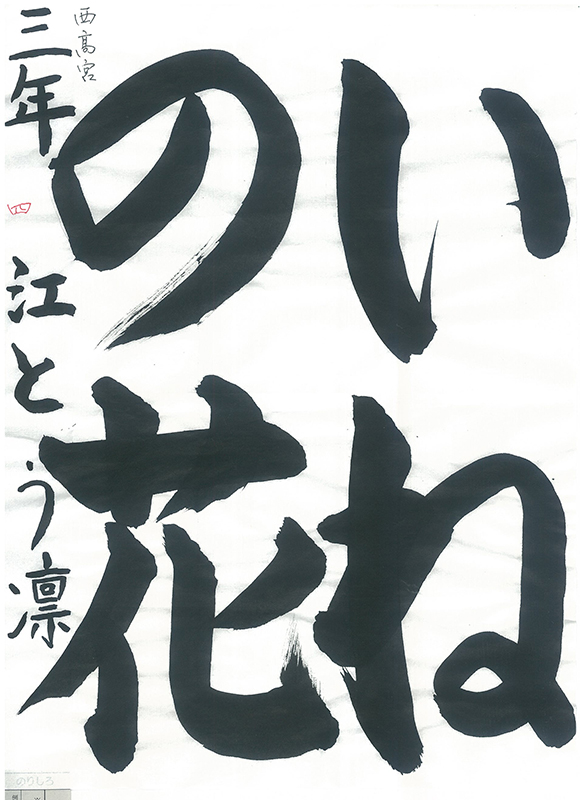 いね
の花
西高宮
三年 江とう凛
四
のりしろ